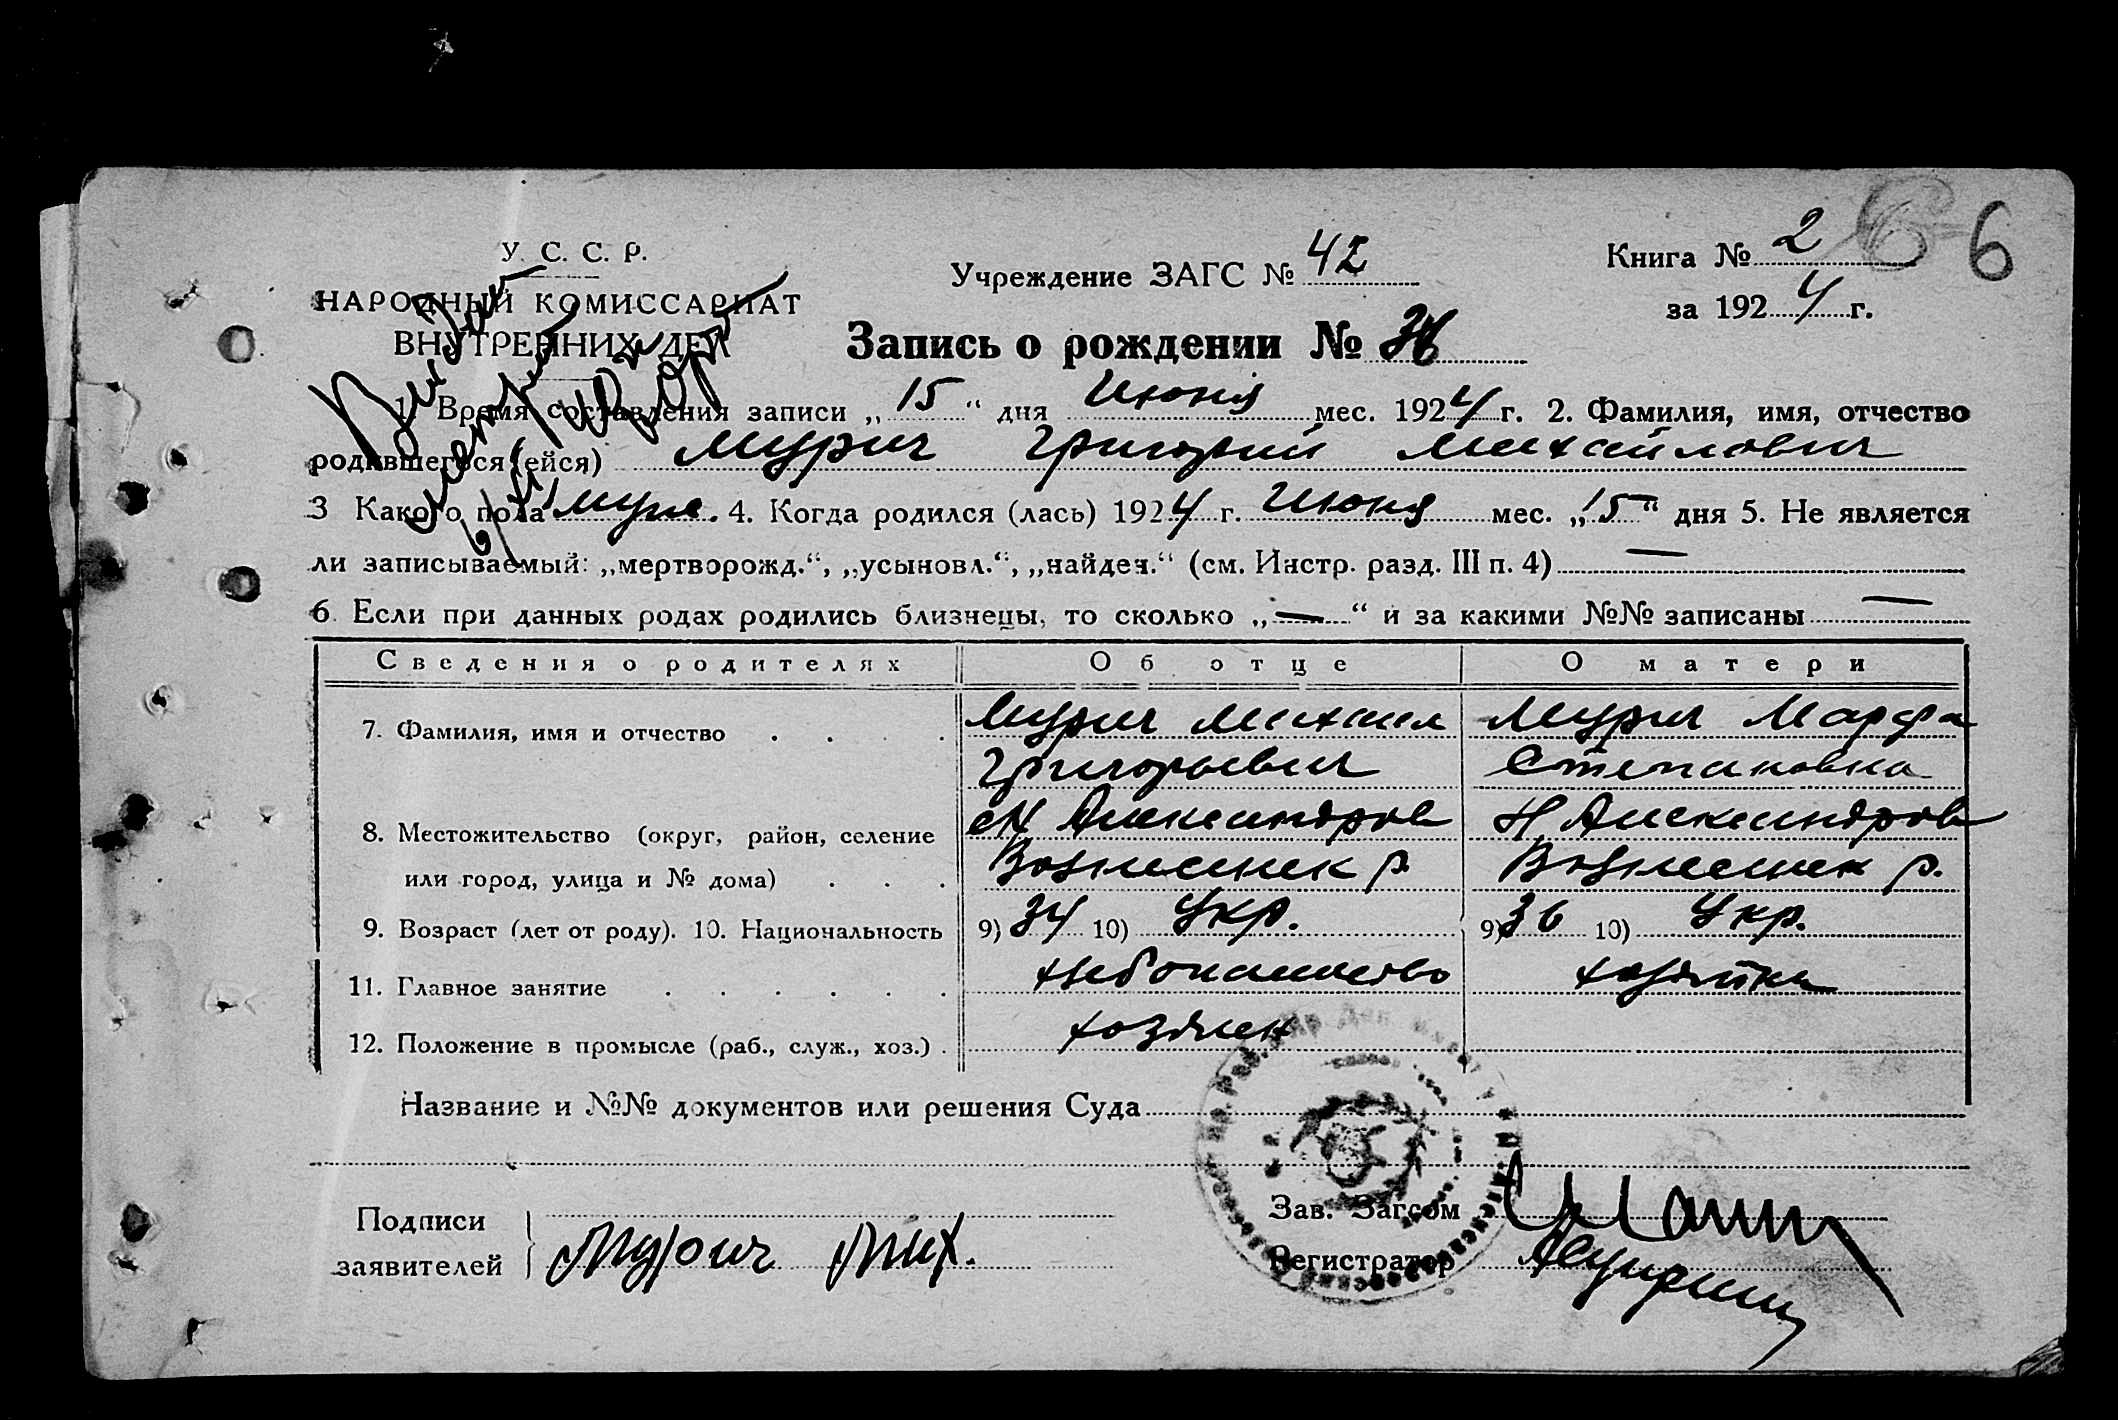 У. С. С. Р.
НАРОДНЫЙ КОМИССАРИАТ
ВНУТРЕННИХ ДЕЛ
Учреждение ЗАГС № 42
Книга № 2
6
за 1924 г.
Запись о рождении № 36
1. Время составления записи „15“ дня Июня мес. 1924 г. 2. Фамилия, имя, отчество
родившегося (ейся) Мурич Григорий Михайлович
3 Какого пола муж. 4. Когда родился (лась) 1924 г. Июня мес. „15“ дня 5. Не является
ли записываемый: „мертворожд.“, „усыновл.“, „найден.“ (см. Инстр. разд. III п. 4) —
6. Если при данных родах родились близнецы, то сколько „—“ и за какими №№ записаны —
Сведения о родителях Об отце О матери
7. Фамилия, имя и отчество Мурич Михаил Мурич Марфа
Григорьевич Степановна
8. Местожительство (округ, район, селение М Александров Н Александров
или город, улица и № дома) Вознесенск р. Вознесенск р.
9. Возраст (лет от роду). 10. Национальность 9) 34 10) Укр. 9) 36 10) Укр.
11. Главное занятие хлебопашество хозяйка
12. Положение в промысле (раб., служ., хоз.) хозяин
Название и №№ документов или решения Суда
Подписи
заявителей Мурич Мих.
Зав. Загсом
Регистратор